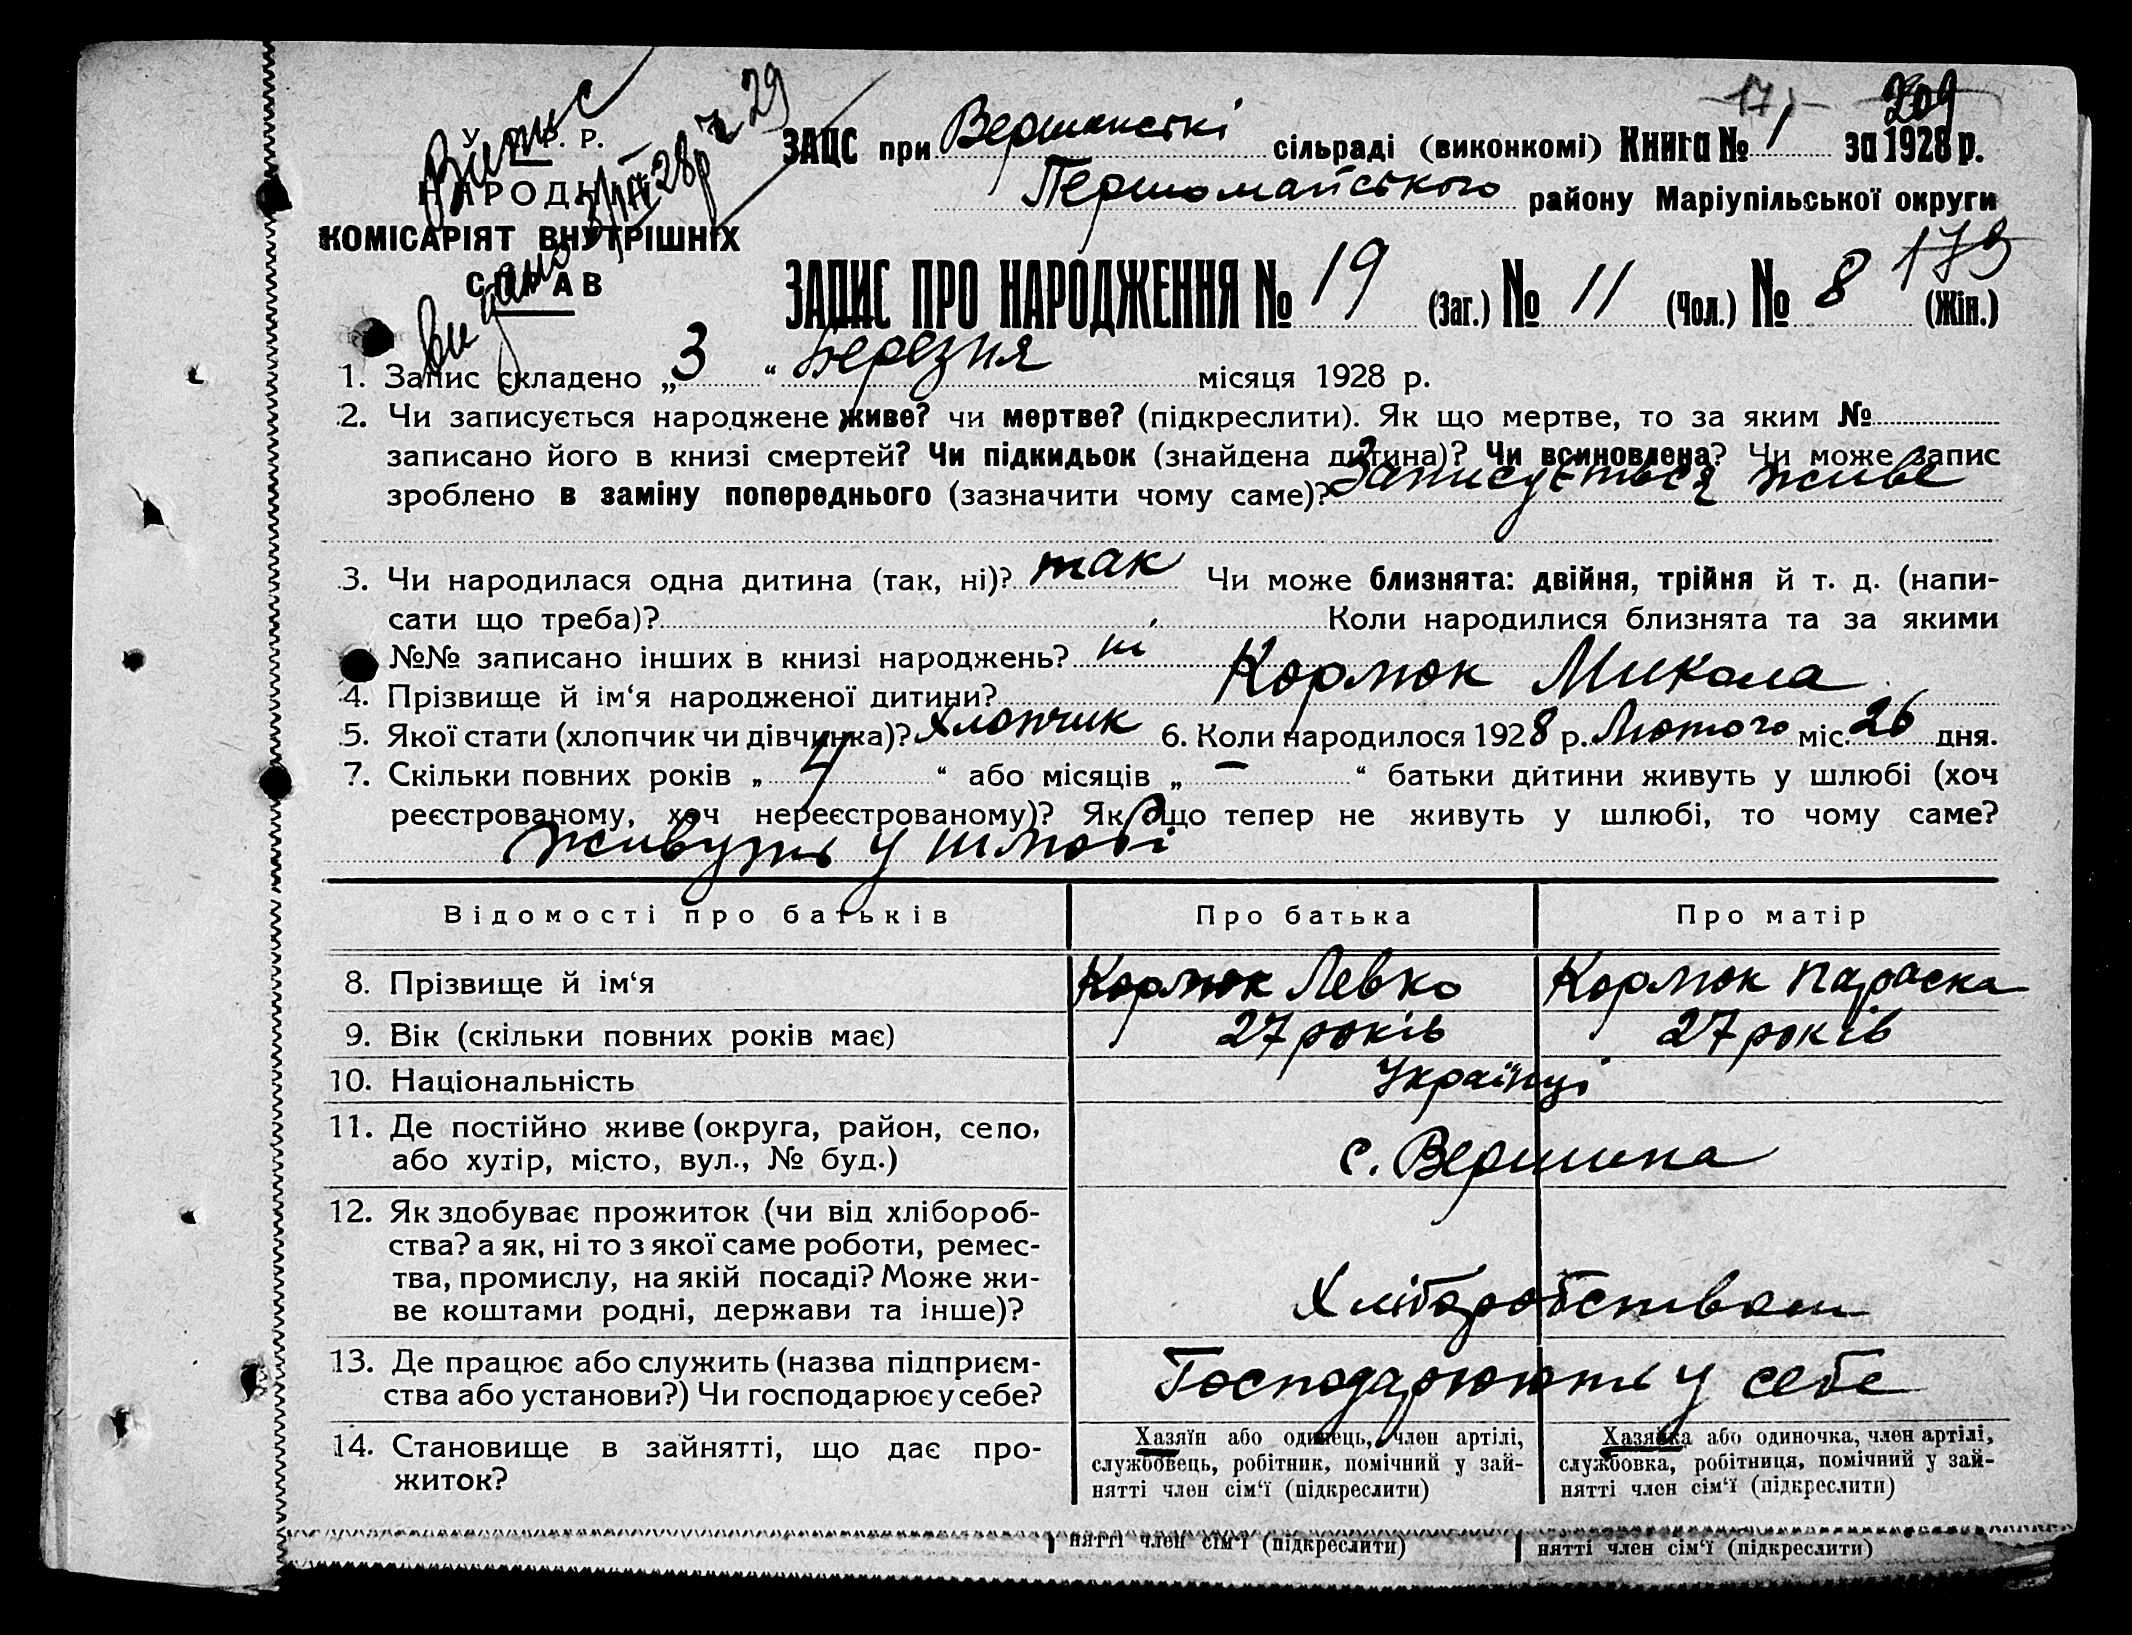 171 209
Випис
У. С. Р. Р.
ЗАЦС при Вершинській сільраді (виконкомі) Книга № 1 за 1928 р.
НАРОДНІЙ
Першомайського району Маріупільської округи
КОМІСАРІЯТ ВНУТРІШНІХ
СПРАВ
видано
173
ЗАПИС ПРО НАРОДЖЕННЯ № 19 (Заг.) № 11 (Чол.) № 8 (Жін.)
1. Запис складено „ 3 “ Березня місяця 1928 р.
2. Чи записується народжене живе? чи мертве? (підкреслити). Як що мертве, то за яким №
записано його в книзі смертей? Чи підкидьок (знайдена дитина)? Чи всиновлена? Чи може запис
зроблено в заміну попереднього (зазначити чому саме)? Записується живе
3. Чи народилася одна дитина (так, ні)? так Чи може близнята: двійня, трійня й т. д. (напи-
сати що треба)? Коли народилися близнята та за якими
№№ записано інших в книзі народжень? ні
4. Прізвище й ім‘я народженої дитини? Корлюк Микола
5. Якої стати (хлопчик чи дівчинка)? Хлопчик 6. Коли народилося 1928 р. Лютого міс. 26 дня.
7. Скільки повних років „ 4 “ або місяців „ — “ батьки дитини живуть у шлюбі (хоч
реєстрованому, хоч нереєстрованому)? Як що тепер не живуть у шлюбі, то чому саме?
живуть у шлюбі
Відомості про батьків Про батька Про матір
8. Прізвище й ім‘я Корлюк Левко Корлюк Параска
9. Вік (скільки повних років має) 27 років 27 років
10. Національність Українці
11. Де постійно живе (округа, район, село,
або хутір, місто, вул., № буд.) с. Вершина
12. Як здобуває прожиток (чи від хлібороб-
ства? а як, ні то з якої саме роботи, ремес-
тва, промислу, на якій посаді? Може жи-
ве коштами родні, держави та інше)? Хліборобством
13. Де працює або служить (назва підприєм-
ства або установи?) Чи господарює у себе? Господарюють у себе
14. Становище в зайнятті, що дає про-
житок?
Хазяїн або одинець, член артілі,
службовець, робітник, помічний у зай-
нятті член сім‘ї (підкреслити)
Хазяйка або одиночка, член артілі,
службовка, робітниця, помічний у зай-
нятті член сім‘ї (підкреслити)
нятті член сім‘ї (підкреслити) нятті член сім‘ї (підкреслити)